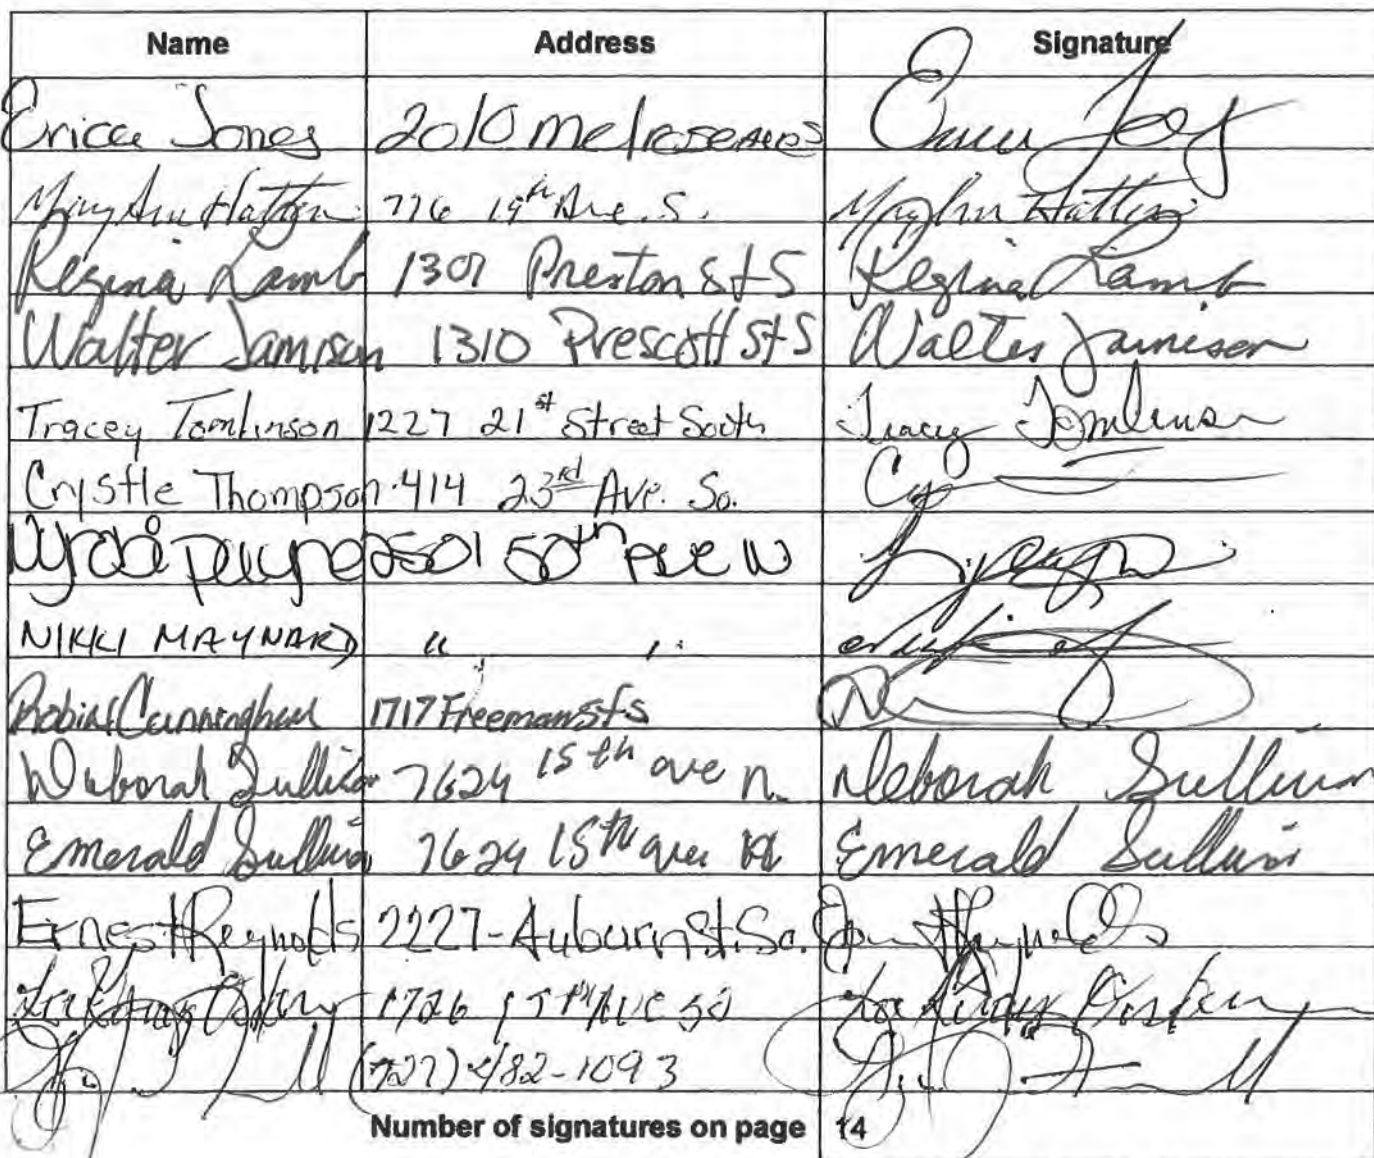 Name Address Signature
Erica Jones 2010 Melrose Ave S
Mary Ann Hatten 776 19th Ave. S. Mary Ann Hatten
Regina Lamb 1301 Preston St S Regina Lamb
Walter Jamison 1310 Prescott St S Walter Jamison
Tracey Tomlinson 1227 21st Street South Tracey Tomlinson
Crystle Thompson 414 23rd Ave. So.
2501 50th Ave N
NIKKI MAYNARD " "
Robin Cunningham 1717 Freemont St S
Deborah Sullivan 7624 15th ave n. Deborah Sullivan
Emerald Sullivan 7624 15th ave N Emerald Sullivan
Ernest Reynolds 2227-Auburn St. So. Ernest Reynolds
1726 Ave So
(727) 482-1093
Number of signatures on page 14